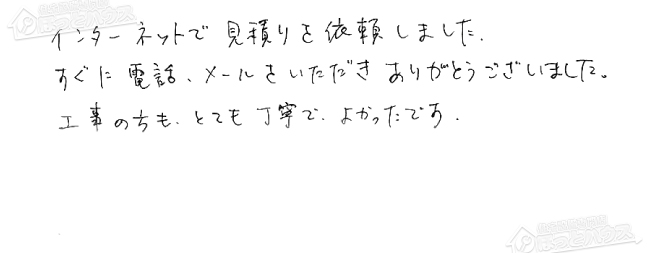 インターネットで見積りを依頼しました.
すぐに電話、メールをいただきありがとうございました。
工事の方も、とても丁寧で、よかったです.